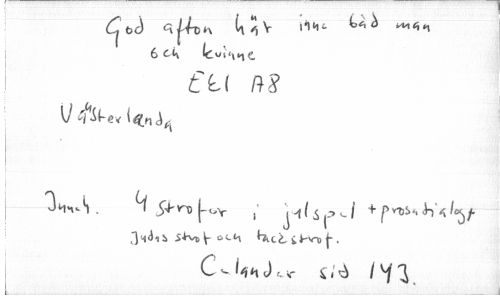 God afton här inne båd man
och kvinne
EEI A8
Västerlanda
Inneh. 4 strofor i julspel + prosadialogt
Judas strof och tackstrof.
Celander sid 143.